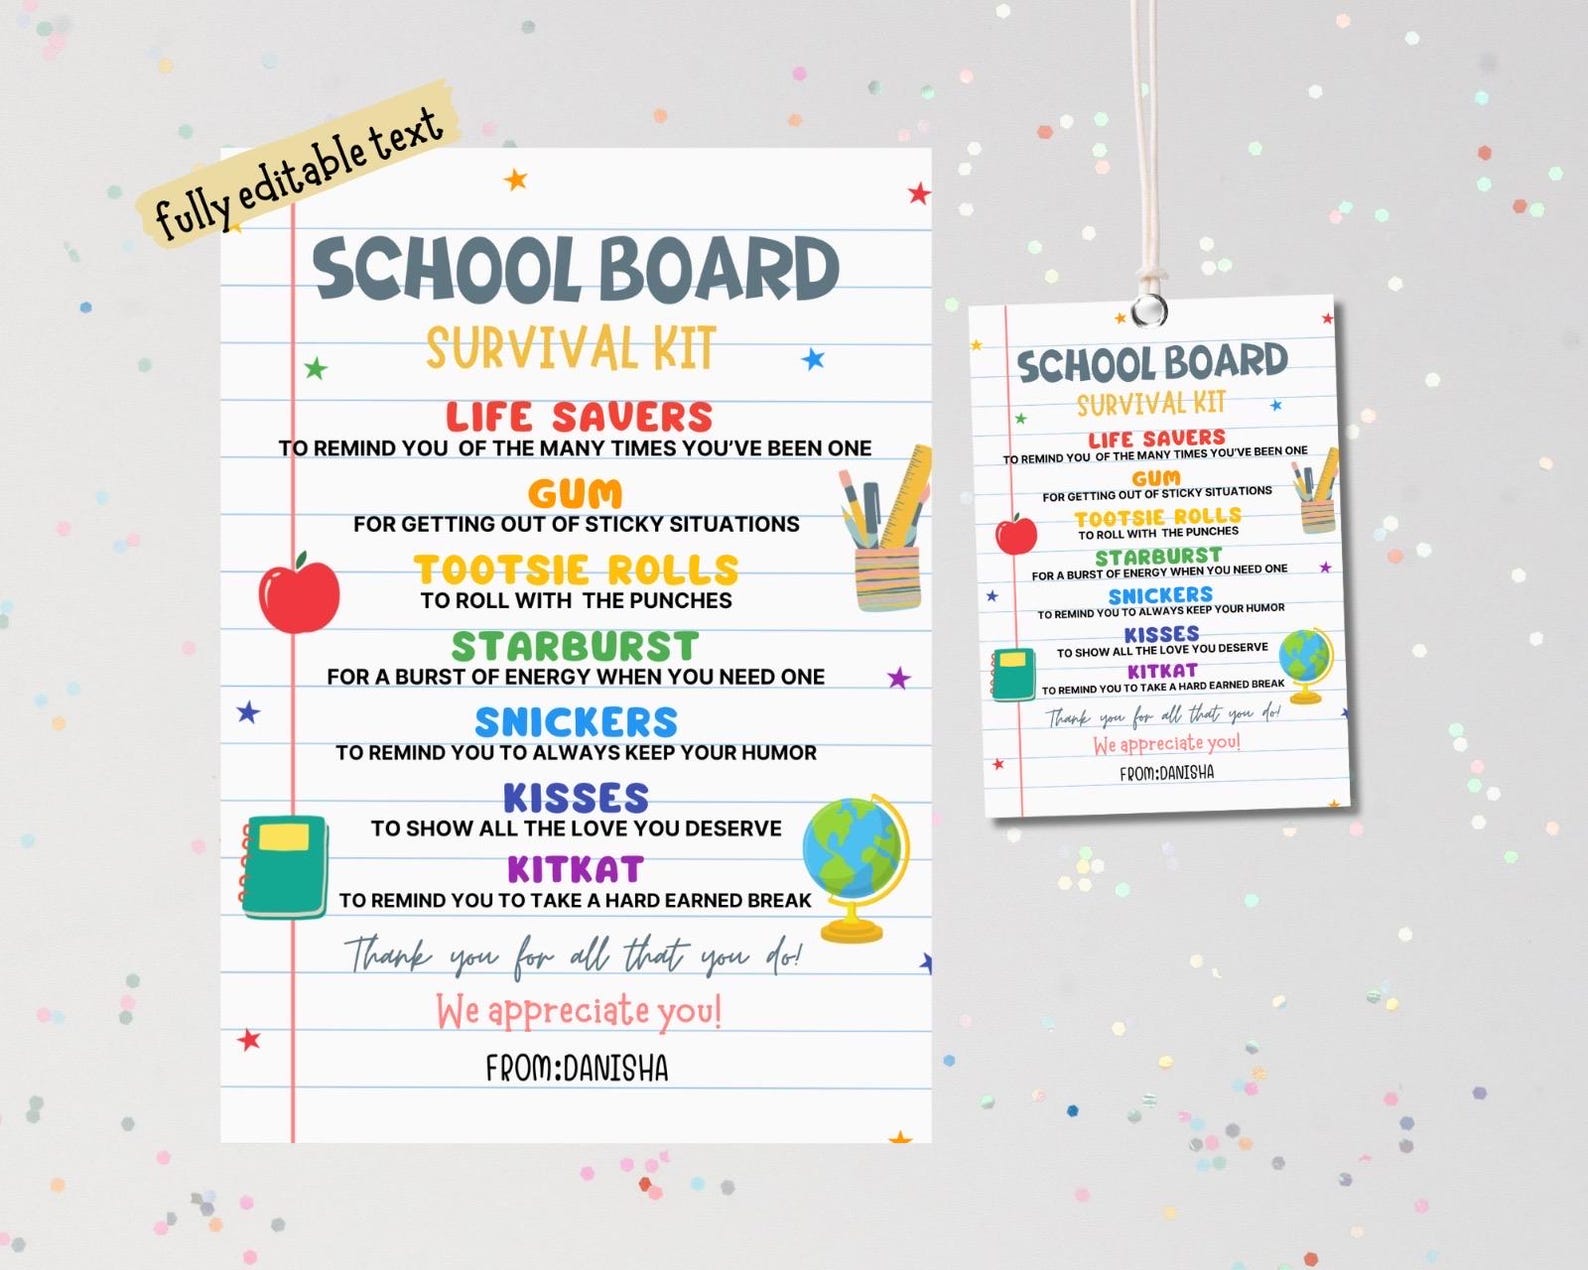 fully editable text
SCHOOL BOARD
SURVIVAL KIT
LIFE SAVERS
TO REMIND YOU OF THE MANY TIMES YOU'VE BEEN ONE
GUM
FOR GETTING OUT OF STICKY SITUATIONS
TOOTSIE ROLLS
TO ROLL WITH THE PUNCHES
STARBURST
FOR A BURST OF ENERGY WHEN YOU NEED ONE
SNICKERS
TO REMIND YOU TO ALWAYS KEEP YOUR HUMOR
KISSES
TO SHOW ALL THE LOVE YOU DESERVE
KITKAT
TO REMIND YOU TO TAKE A HARD EARNED BREAK
Thank you for all that you do!
We appreciate you!
FROM:DANISHA
SCHOOL BOARD
SURVIVAL KIT
LIFE SAVERS
TO REMIND YOU OF THE MANY TIMES YOU'VE BEEN ONE
GUM
FOR GETTING OUT OF STICKY SITUATIONS
TOOTSIE ROLLS
TO ROLL WITH THE PUNCHES
STARBURST
FOR A BURST OF ENERGY WHEN YOU NEED ONE
SNICKERS
TO REMIND YOU TO ALWAYS KEEP YOUR HUMOR
KISSES
TO SHOW ALL THE LOVE YOU DESERVE
KITKAT
TO REMIND YOU TO TAKE A HARD EARNED BREAK
Thank you for all that you do!
We appreciate you!
FROM:DANISHA